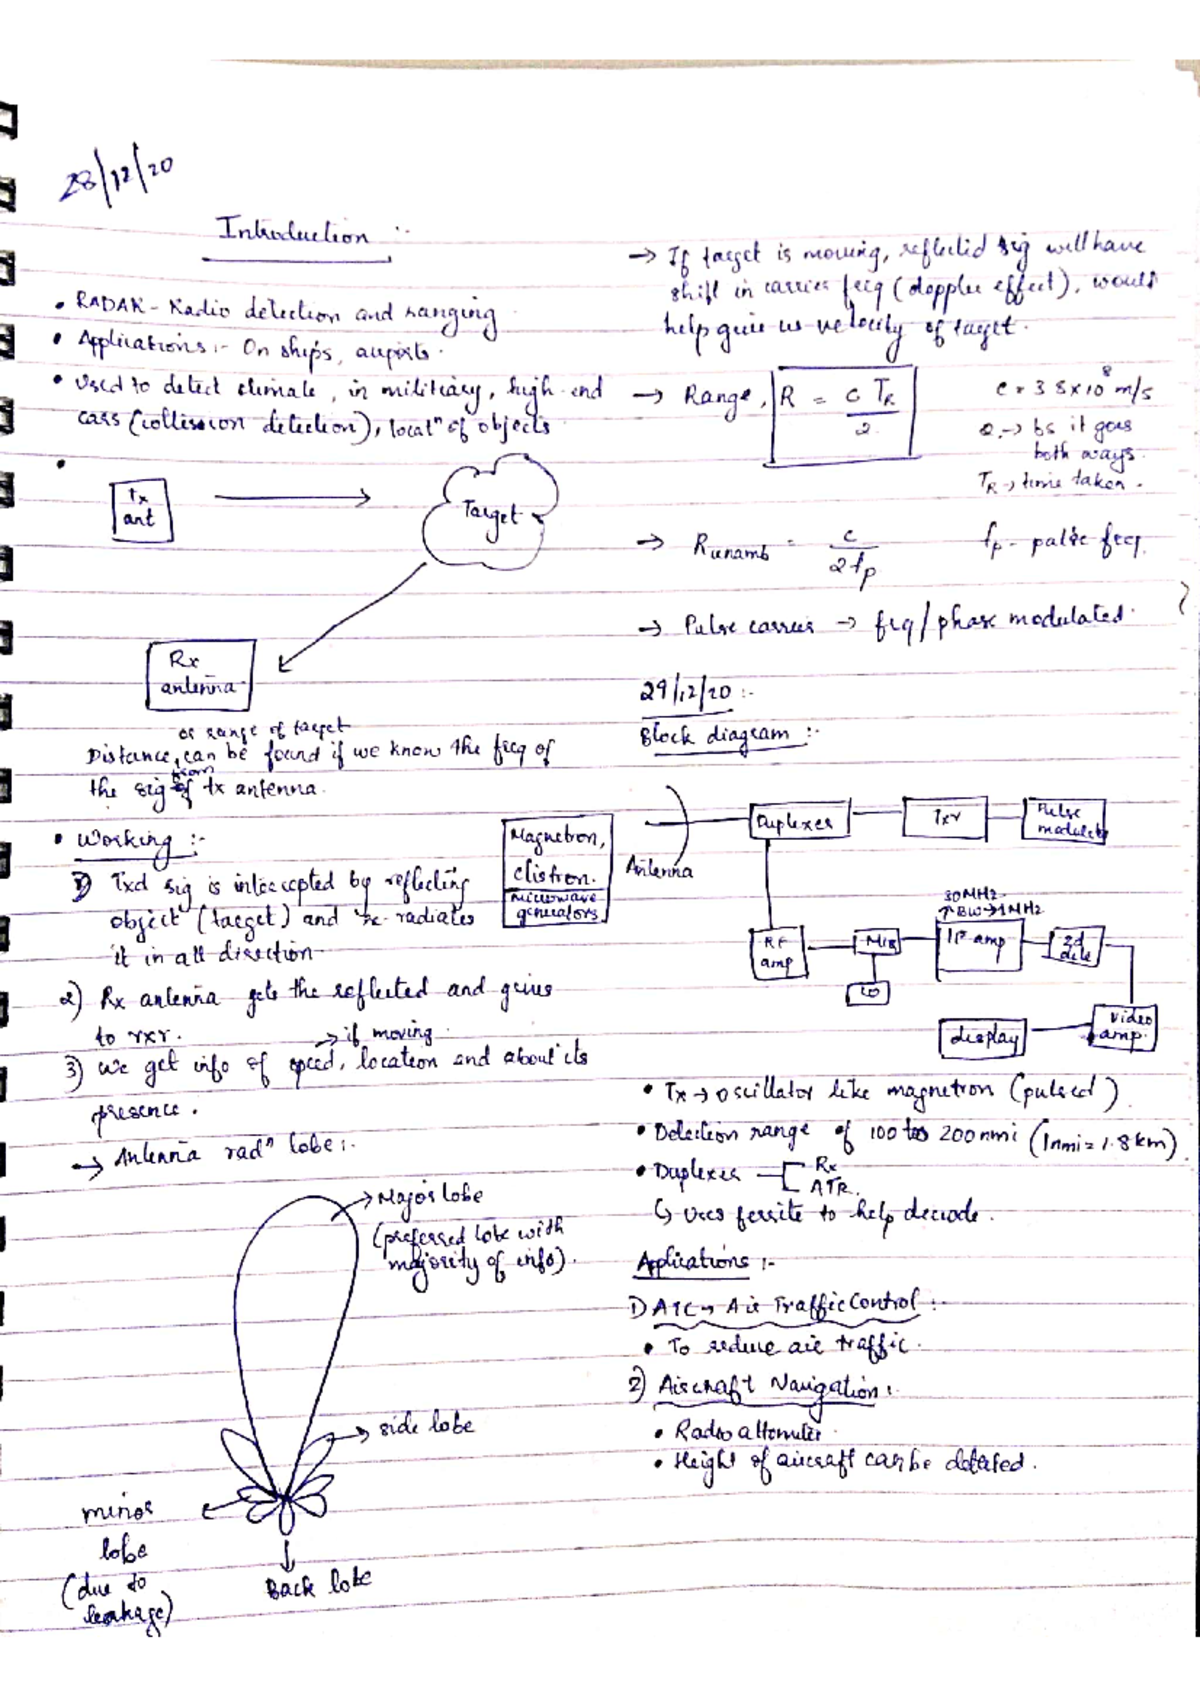 28/12/20
Introduction :-
• RADAR - Radio detection and ranging
• Applications :- On ships, airports.
• Used to detect climate, in military, high-end
cars (collission detection), locatⁿ of objects
•
tx
ant
Target
Rx
antenna
or range of target
Distance, can be found if we know the freq of
the sig from tx antenna.
• Working :-
1) Txd sig is intercepted by reflecting
object (target) and re-radiates
it in all direction
2) Rx antenna gets the reflected and gives
to rxr.
→ if moving.
3) We get info of speed, location and about its
presence.
→ Antenna radⁿ lobe :-
→ Major lobe
(preferred lobe with
majority of info).
→ side lobe
minor
lobe
(due to
leakage)
Back lobe
→ If target is moving, reflected sig will have
shift in carrier freq (doppler effect), would
help give us velocity of target.
→ Range, R = c TR / 2
c = 3 × 10⁸ m/s
2 → bs it goes
both ways.
TR → time taken.
→ Runamb = c / 2fp
fp - pulse freq.
→ Pulse carrier → frq/phase modulated.
29/12/20 :-
Block diagram :-
Magnetron,
clistron.
microwave
generators.
Antenna
Duplexer
Txr
Pulse
modulator
30MHz
↑ BW → 1MHz
RF
amp
Mix
IF amp
2d
dete
LO
Video
amp.
display
• Tx → oscillator like magnetron (pulsed)
• Detection range of 100 to 200nmi (1nmi = 1.8km)
• Duplexer
Rx
ATR.
↳ Uses ferrite to help decode.
Applications :-
1) ATC → Air Traffic Control :-
• To reduce air traffic.
2) Aircraft Navigation :-
• Radio altometer
• Height of aircraft can be detated.